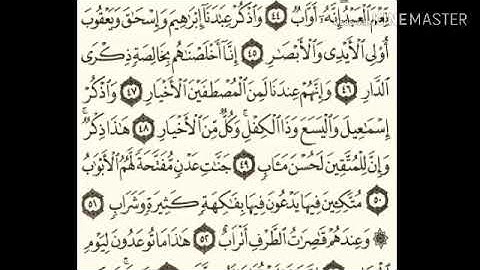 نِّعْمَ ٱلْعَبْدُ إِنَّهُۥٓ أَوَّابٌ ٤٤ وَٱذْكُرْ عِبَٰدَنَآ إِبْرَٰهِيمَ وَإِسْحَٰقَ وَيَعْقُوبَ
أُو۟لِى ٱلْأَيْدِى وَٱلْأَبْصَٰرِ ٤٥ إِنَّآ أَخْلَصْنَٰهُم بِخَالِصَةٍ ذِكْرَى
ٱلدَّارِ ٤٦ وَإِنَّهُمْ عِندَنَا لَمِنَ ٱلْمُصْطَفَيْنَ ٱلْأَخْيَارِ ٤٧ وَٱذْكُرْ
إِسْمَٰعِيلَ وَٱلْيَسَعَ وَذَا ٱلْكِفْلِ وَكُلٌّ مِّنَ ٱلْأَخْيَارِ ٤٨ هَٰذَا ذِكْرٌ
وَإِنَّ لِلْمُتَّقِينَ لَحُسْنَ مَـَٔابٍ ٤٩ جَنَّٰتِ عَدْنٍ مُّفَتَّحَةً لَّهُمُ ٱلْأَبْوَٰبُ
٥٠ مُتَّكِـِٔينَ فِيهَا يَدْعُونَ فِيهَا بِفَٰكِهَةٍ كَثِيرَةٍ وَشَرَابٍ ٥١
۞ وَعِندَهُمْ قَٰصِرَٰتُ ٱلطَّرْفِ أَتْرَابٌ ٥٢ هَٰذَا مَا تُوعَدُونَ لِيَوْمِ
KINEMASTER